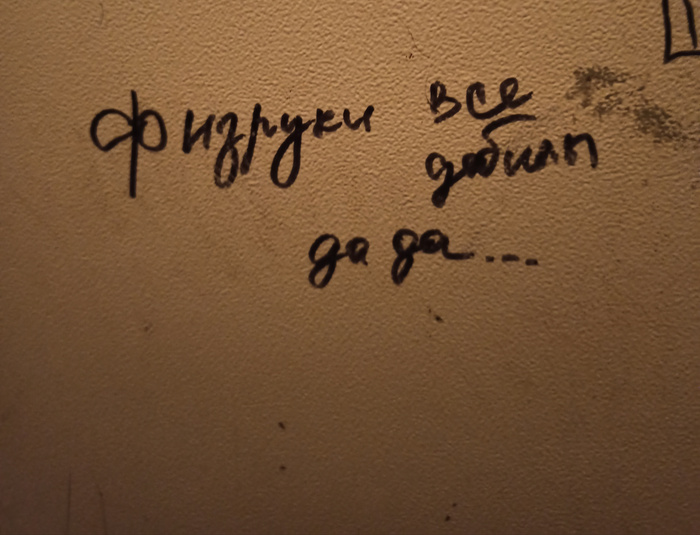 физруки все
дебилы
да да...